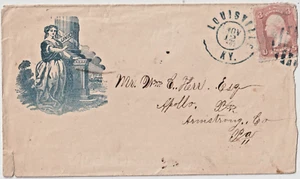 LOUISVILLE
NOV
KY.
Mr. Wm E. Kerr. Esq
Apollo.
Armstrong. Co
Pa